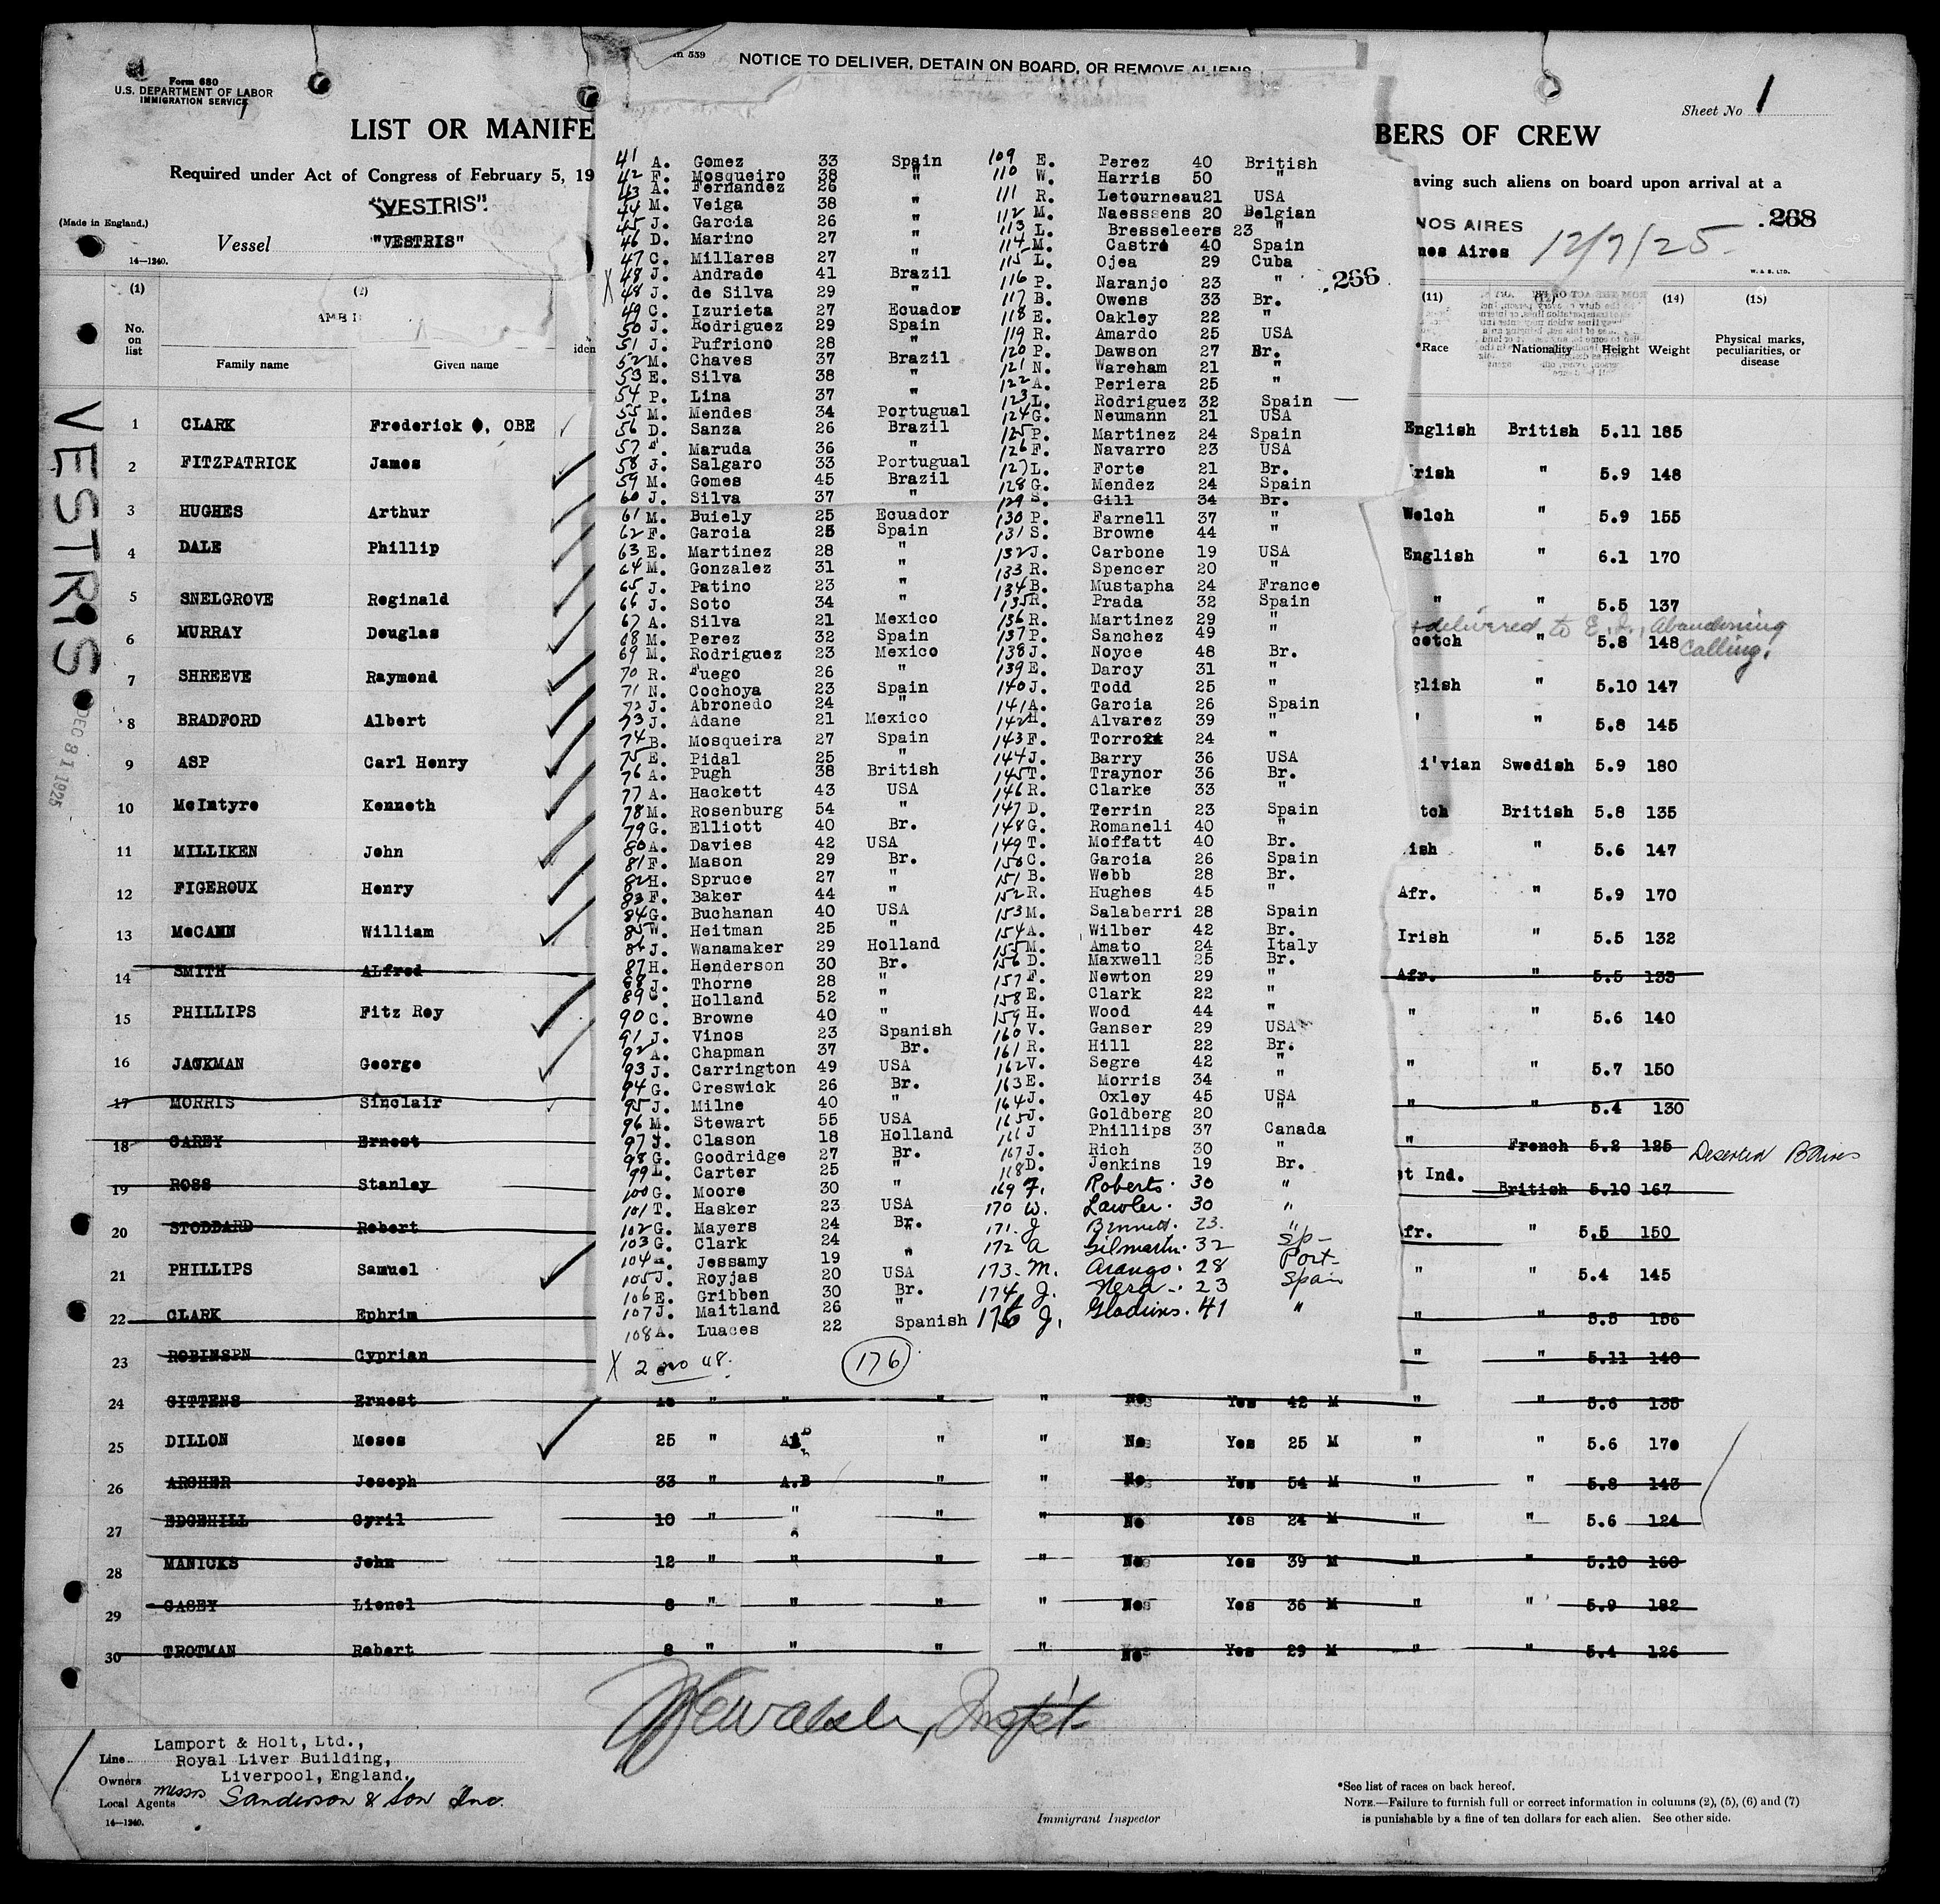 Form 680
U.S. DEPARTMENT OF LABOR
IMMIGRATION SERVICE
LIST OR MANIFE
Required under Act of Congress of February 5, 19
"VESTRIS".
(Made in England.)
Vessel "VESTRIS"
14—1240.
559
NOTICE TO DELIVER, DETAIN ON BOARD, OR REMOVE ALIENS
Sheet No 1
BERS OF CREW
aving such aliens on board upon arrival at a
NOS AIRES
268
nos Aires 12/7/25
W. & S. LTD.
(1) (2)
No. on list
Family name Given name
iden
(11) (14) (15)
*Race Nationality Height Weight Physical marks, peculiarities, or disease
VESTRIS
DEC 8 1 1925
1 CLARK Frederick , OBE English British 5.11 185
2 FITZPATRICK James rish " 5.9 148
3 HUGHES Arthur Welch " 5.9 155
4 DALE Phillip English " 6.1 170
5 SNELGROVE Reginald " " 5.5 137
delivered to E. I., Abandoning Calling.
6 MURRAY Douglas cotch " 5.8 148
7 SHREEVE Raymond glish " 5.10 147
8 BRADFORD Albert ' " 5.8 145
9 ASP Carl Henry i'vian Swedish 5.9 180
10 McIntyre Kenneth tch British 5.8 135
11 MILLIKEN John ish " 5.6 147
12 FIGEROUX Henry Afr. " 5.9 170
13 McCANN William Irish " 5.5 132
14 SMITH ALfred Afr. " 5.5 135
15 PHILLIPS Fitz Roy " " 5.6 140
16 JACKMAN George " " 5.7 150
17 MORRIS Sinclair " " 5.4 130
18 CAREY Ernest " French 5.2 125 Deserted BAires
19 ROSS Stanley st Ind. British 5.10 167
20 STODDARD Robert Afr. " 5.5 150
21 PHILLIPS Samuel " " 5.4 145
22 CLARK Ephrim " " 5.5 156
23 ROBINSPN Cyprian " " 5.11 140
24 GITTENS Ernest " " " " No Yes 42 M " " 5.6 135
25 DILLON Moses 25 " AB " " No Yes 25 M " " 5.6 170
26 ARCHER Joseph 33 " A.B " " No Yes 54 M " " 5.8 143
27 EDGEHILL Cyril 10 " " " " No Yes 24 M " " 5.6 124
28 MANICKS John 12 " " " " No Yes 39 M " " 5.10 160
29 CASEY Lionel 8 " " " " No Yes 36 M " " 5.9 182
30 TROTMAN Robert 8 " " " " No Yes 29 M " " 5.4 126
266
41 A. Gomez 33 Spain
42 F. Mosqueiro 38 "
43 A. Fernandez 26
44 M. Veiga 38 "
45 J. Garcia 26 "
46 D. Marino 27 "
47 C. Millares 27 "
X 48 J. Andrade 41 Brazil
48 J. de Silva 29 "
49 C. Izurieta 27 Ecuador
50 J. Rodriguez 29 Spain
51 J. Pufricno 28 "
52 M. Chaves 37 Brazil
53 E. Silva 38 "
54 P. Lina 37 "
55 M. Mendes 34 Portugual
56 D. Sanza 26 Brazil
57 F. Maruda 36 "
58 J. Salgaro 33 Portugual
59 M. Gomes 45 Brazil
60 J. Silva 37 "
61 M. Buiely 25 Ecuador
62 F. Garcia 25 Spain
63 E. Martinez 28 "
64 M. Gonzalez 31 "
65 J. Patino 23 "
66 J. Soto 34 "
67 A. Silva 21 Mexico
68 M. Perez 32 Spain
69 M. Rodriguez 23 Mexico
70 R. Fuego 26 "
71 N. Cochoya 23 Spain
72 J. Abronedo 24 "
73 J. Adane 21 Mexico
74 B. Mosqueira 27 Spain
75 E. Pidal 25 "
76 A. Pugh 38 British
77 A. Hackett 43 USA
78 M. Rosenburg 54 "
79 G. Elliott 40 Br.
80 A. Davies 42 USA
81 F. Mason 29 Br.
82 H. Spruce 27 "
83 F. Baker 44 "
84 G. Buchanan 40 USA
85 W. Heitman 25 "
86 J. Wanamaker 29 Holland
87 H. Henderson 30 Br.
88 J. Thorne 28 "
89 C. Holland 52 "
90 C. Browne 40 "
91 J. Vinos 23 Spanish
92 A. Chapman 37 Br.
93 J. Carrington 49 USA
94 G. Creswick 26 Br.
95 J. Milne 40 "
96 M. Stewart 55 USA
97 J. Clason 18 Holland
98 G. Goodridge 27 Br.
99 L. Carter 25 "
100 G. Moore 30 "
101 T. Hasker 23 USA
102 G. Mayers 24 Br.
103 G. Clark 24 "
104 Jessamy 19 "
105 J. Royjas 20 USA
106 E. Gribben 30 Br.
107 J. Maitland 26 "
108 A. Luaces 22 Spanish
X 2 no 48.
176
109 E. Perez 40 British
110 W. Harris 50 "
111 R. Letourneau 21 USA
112 M. Naesssens 20 Belgian
113 L. Bresseleers 23 "
114 M. Castro 40 Spain
115 L. Ojea 29 Cuba
116 P. Naranjo 23 "
117 B. Owens 33 Br.
118 E. Oakley 22 "
119 R. Amardo 25 USA
120 P. Dawson 27 Br.
121 N. Wareham 21 "
122 A. Periera 25 "
123 L. Rodriguez 32 Spain —
124 G. Neumann 21 USA
125 P. Martinez 24 Spain
126 F. Navarro 23 USA
127 L. Forte 21 Br.
128 G. Mendez 24 Spain
129 S. Gill 34 Br.
130 P. Farnell 37 "
131 S. Browne 44 "
132 J. Carbone 19 USA
133 R. Spencer 20 "
134 B. Mustapha 24 France
135 R. Prada 32 Spain
136 R. Martinez 29 "
137 P. Sanchez 49 "
138 J. Noyce 48 Br.
139 E. Darcy 31 "
140 J. Todd 25 "
141 A. Garcia 26 Spain
142 H. Alvarez 39 "
143 F. Torro 24 "
144 J. Barry 36 USA
145 T. Traynor 36 Br.
146 R. Clarke 33 "
147 D. Terrin 23 Spain
148 G. Romaneli 40 "
149 T. Moffatt 40 Br.
150 C. Garcia 26 Spain
151 B. Webb 28 Br.
152 R. Hughes 45 "
153 M. Salaberri 28 Spain
154 A. Wilber 42 Br.
155 M. Amato 24 Italy
156 D. Maxwell 25 Br.
157 F. Newton 29 "
158 E. Clark 22 "
159 H. Wood 44 "
160 V. Ganser 29 USA
161 R. Hill 22 Br.
162 V. Segre 42 "
163 E. Morris 34 "
164 J. Oxley 45 USA
165 J. Goldberg 20 "
166 J Phillips 37 Canada
167 J. Rich 30 "
168 D. Jenkins 19 Br.
169 F. Roberts. 30 "
170 W. Lawler. 30 "
171. J Bennett. 23. "
172 A Gilmartin. 32 Sp-
173. M. Arango. 28 Port-
174 J. Nesa. 23 Spain
176 J. Gladuins. 41 "
Line Lamport & Holt, Ltd.,
Royal Liver Building,
Owners Liverpool, England.
Local Agents Messrs Sanderson & Son Inc.
14—1240.
Immigrant Inspector
*See list of races on back hereof.
NOTE.—Failure to furnish full or correct information in columns (2), (5), (6) and (7)
is punishable by a fine of ten dollars for each alien. See other side.